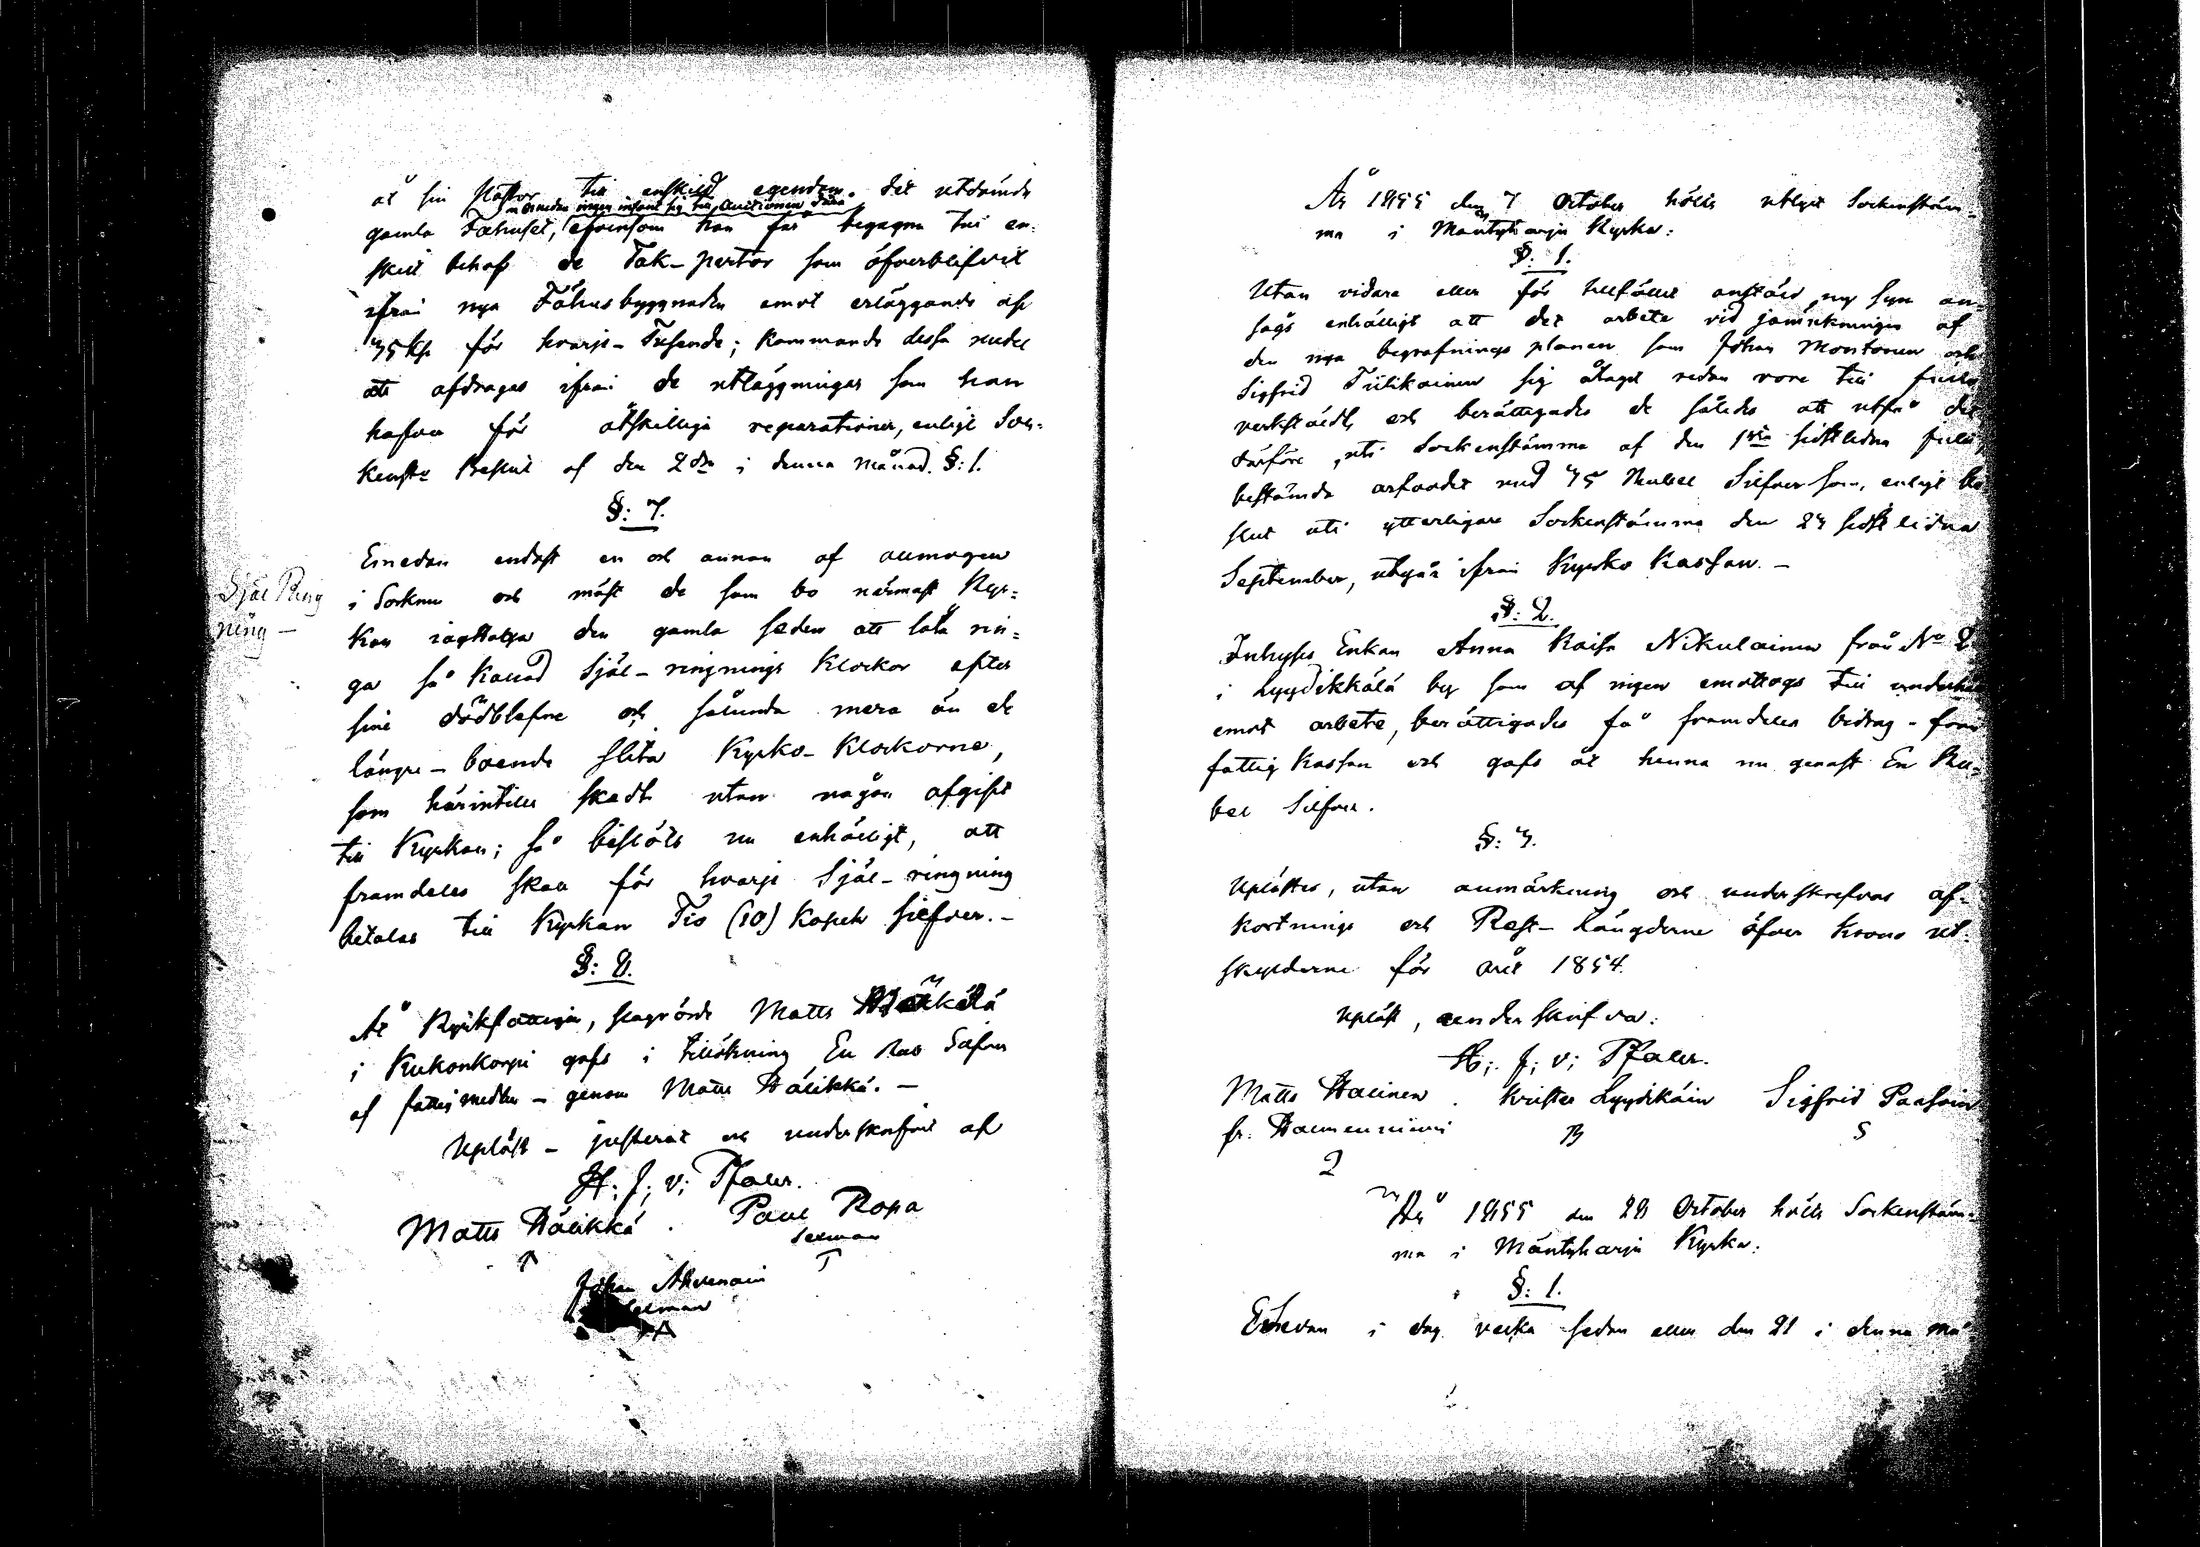 åt sin Pastor till enskild egendom det utdömda
emedan ingen infant sig till auctionen dära
gamla Fähuset, äfvensom han får begagna till en-
skilt behof de Tak-pertor som öfverblifvit
ifrån nya Fähusbyggnaden emot erläggande af
75 kp för hvarje-Tusende; kommande dessa medel
att afdragas ifrån de utläggningar som han
hafva för åtskilliga reparationer, enligt Soc-
kenst: Beslut af den 2dra i denna månad. §: 1.
§: 7.
Själ Ring
ning —
Emedan endast en och annan af allmogen
i Socknen och mäst de som bo närmast Kyr-
kan iagttaga den gamla seden att låta rin-
ga så kallad Själ-ringnings Klockor efter
sine dödblefne och sålunda mera än de
längre-boende slita Kyrko-Klockorna,
som härintills skedt utan någon afgift
till Kyrkan; så beslöts nu enhälligt, att
framdeles skall för hvarje Själ-ringning
betalas till Kyrkan Tio (10) Kopek silfver. —
§: 8.
Åt Rykfattiga, slagrörde Matts
i Kukonkorpi gafs i tillökning En Rub Silfver
af fattigmedlen — genom Matts Hälikkä. —
Upläst — justerat och underskrifvit af
H; J; v; Pfaler.
Matts Hälikkä. Paul Ropa
Sexman
Johan Ahvenain
Sexman
År 1855 den 7 October hölls utlyst Sockenstäm-
ma i Mäntyharju Kyrka:
§: 1.
Utan vidare eller för tillfället anstäld ny syn an-
sågs enhälligt att det arbete vid jämkningen af
den nya begrafnings planen som Johan Montonen och
Sigfrid Tiilikainen sig åtagit redan vore till fullo
verkstäldt, och berättigades de således att utfå det
därföre, uti Sockenstämma af den 1sta sistledne Julii,
bestämda arfvodet med 75 Rubel Silfver som, enligt be-
slut uti ytterligare Sockenstämma den 24 sistlidna
September, utgår ifrån Kyrko Kassan. —
§: 2.
Inhyses Enkan Anna Kaisa Nikulainen från No 2
i Lyydikkälä by som af ingen emottogs till underhåll
emot arbete, berättigades få framdeles bidrag från
fattig Kassan och gafs åt henne nu genast En Ru-
bel Silfver.
§: 3.
Uplästes, utan anmärkning och underskrefvos af-
kortnings och Rest-Längderne öfver Krono ut-
skylderne för året 1854.
Upläst, underskrifva:
H; J; v; Pfaler.
Matts Halinen. Krister Lyydikäin Sigfrid Paasoin
fr. B S
2
År 1855 den 28 October hölls Sockenstäm-
ma i Mäntyharju Kyrka.
§: 1.
Emedan i dag vecka sedan eller den 21 i denna må-